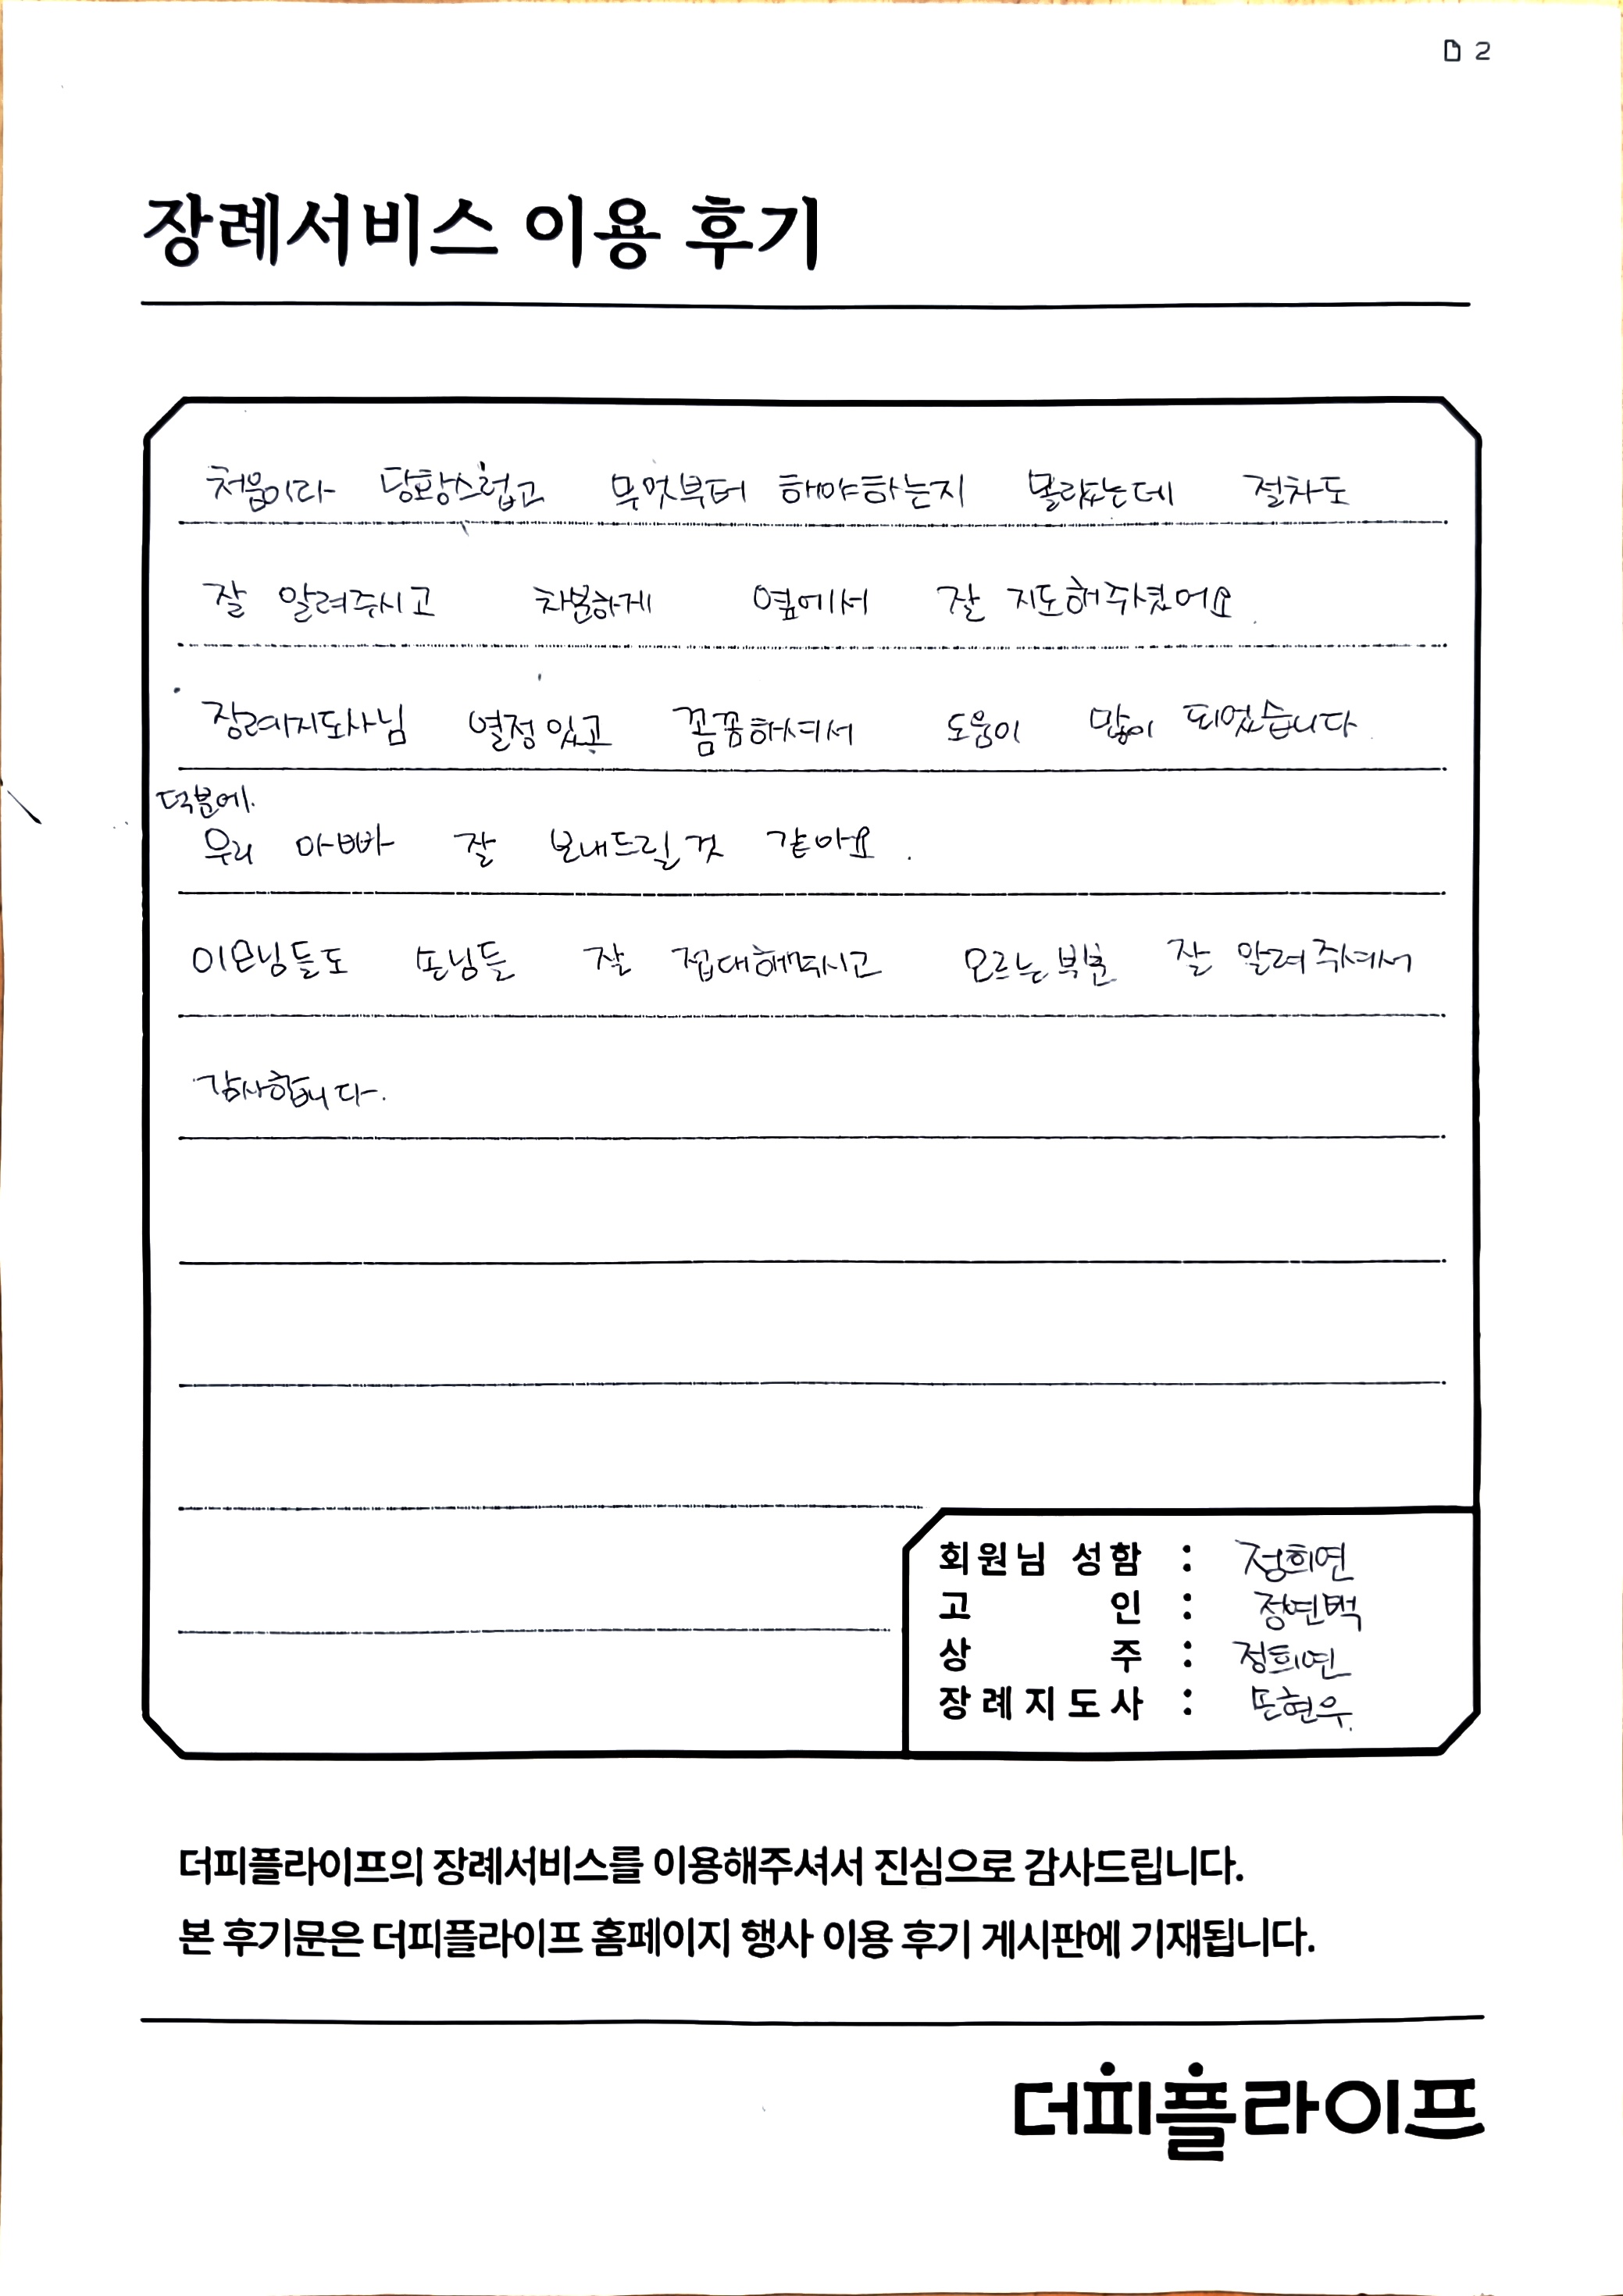 2
장례서비스 이용 후기
처음이라 당황스럽고 무엇부터 해야하는지 몰랐는데 절차도
잘 알려주시고 차분하게 옆에서 잘 지도해주셨어요.
장례지도사님 열정있고 꼼꼼하셔서 도움이 많이 되었습니다.
덕분에.
우리 아빠 잘 보내드릴것 같아요.
이모님들도 손님들 잘 접대해주시고 모르는부분 잘 알려주셔서
감사합니다.
회원님 성함 : 정희연
고 인 :
상 주 : 정희연
장례지도사 : 손현우.
더피플라이프의 장례서비스를 이용해주셔서 진심으로 감사드립니다.
본 후기문은 더피플라이프 홈페이지 행사 이용 후기 게시판에 기재됩니다.
더피플라이프